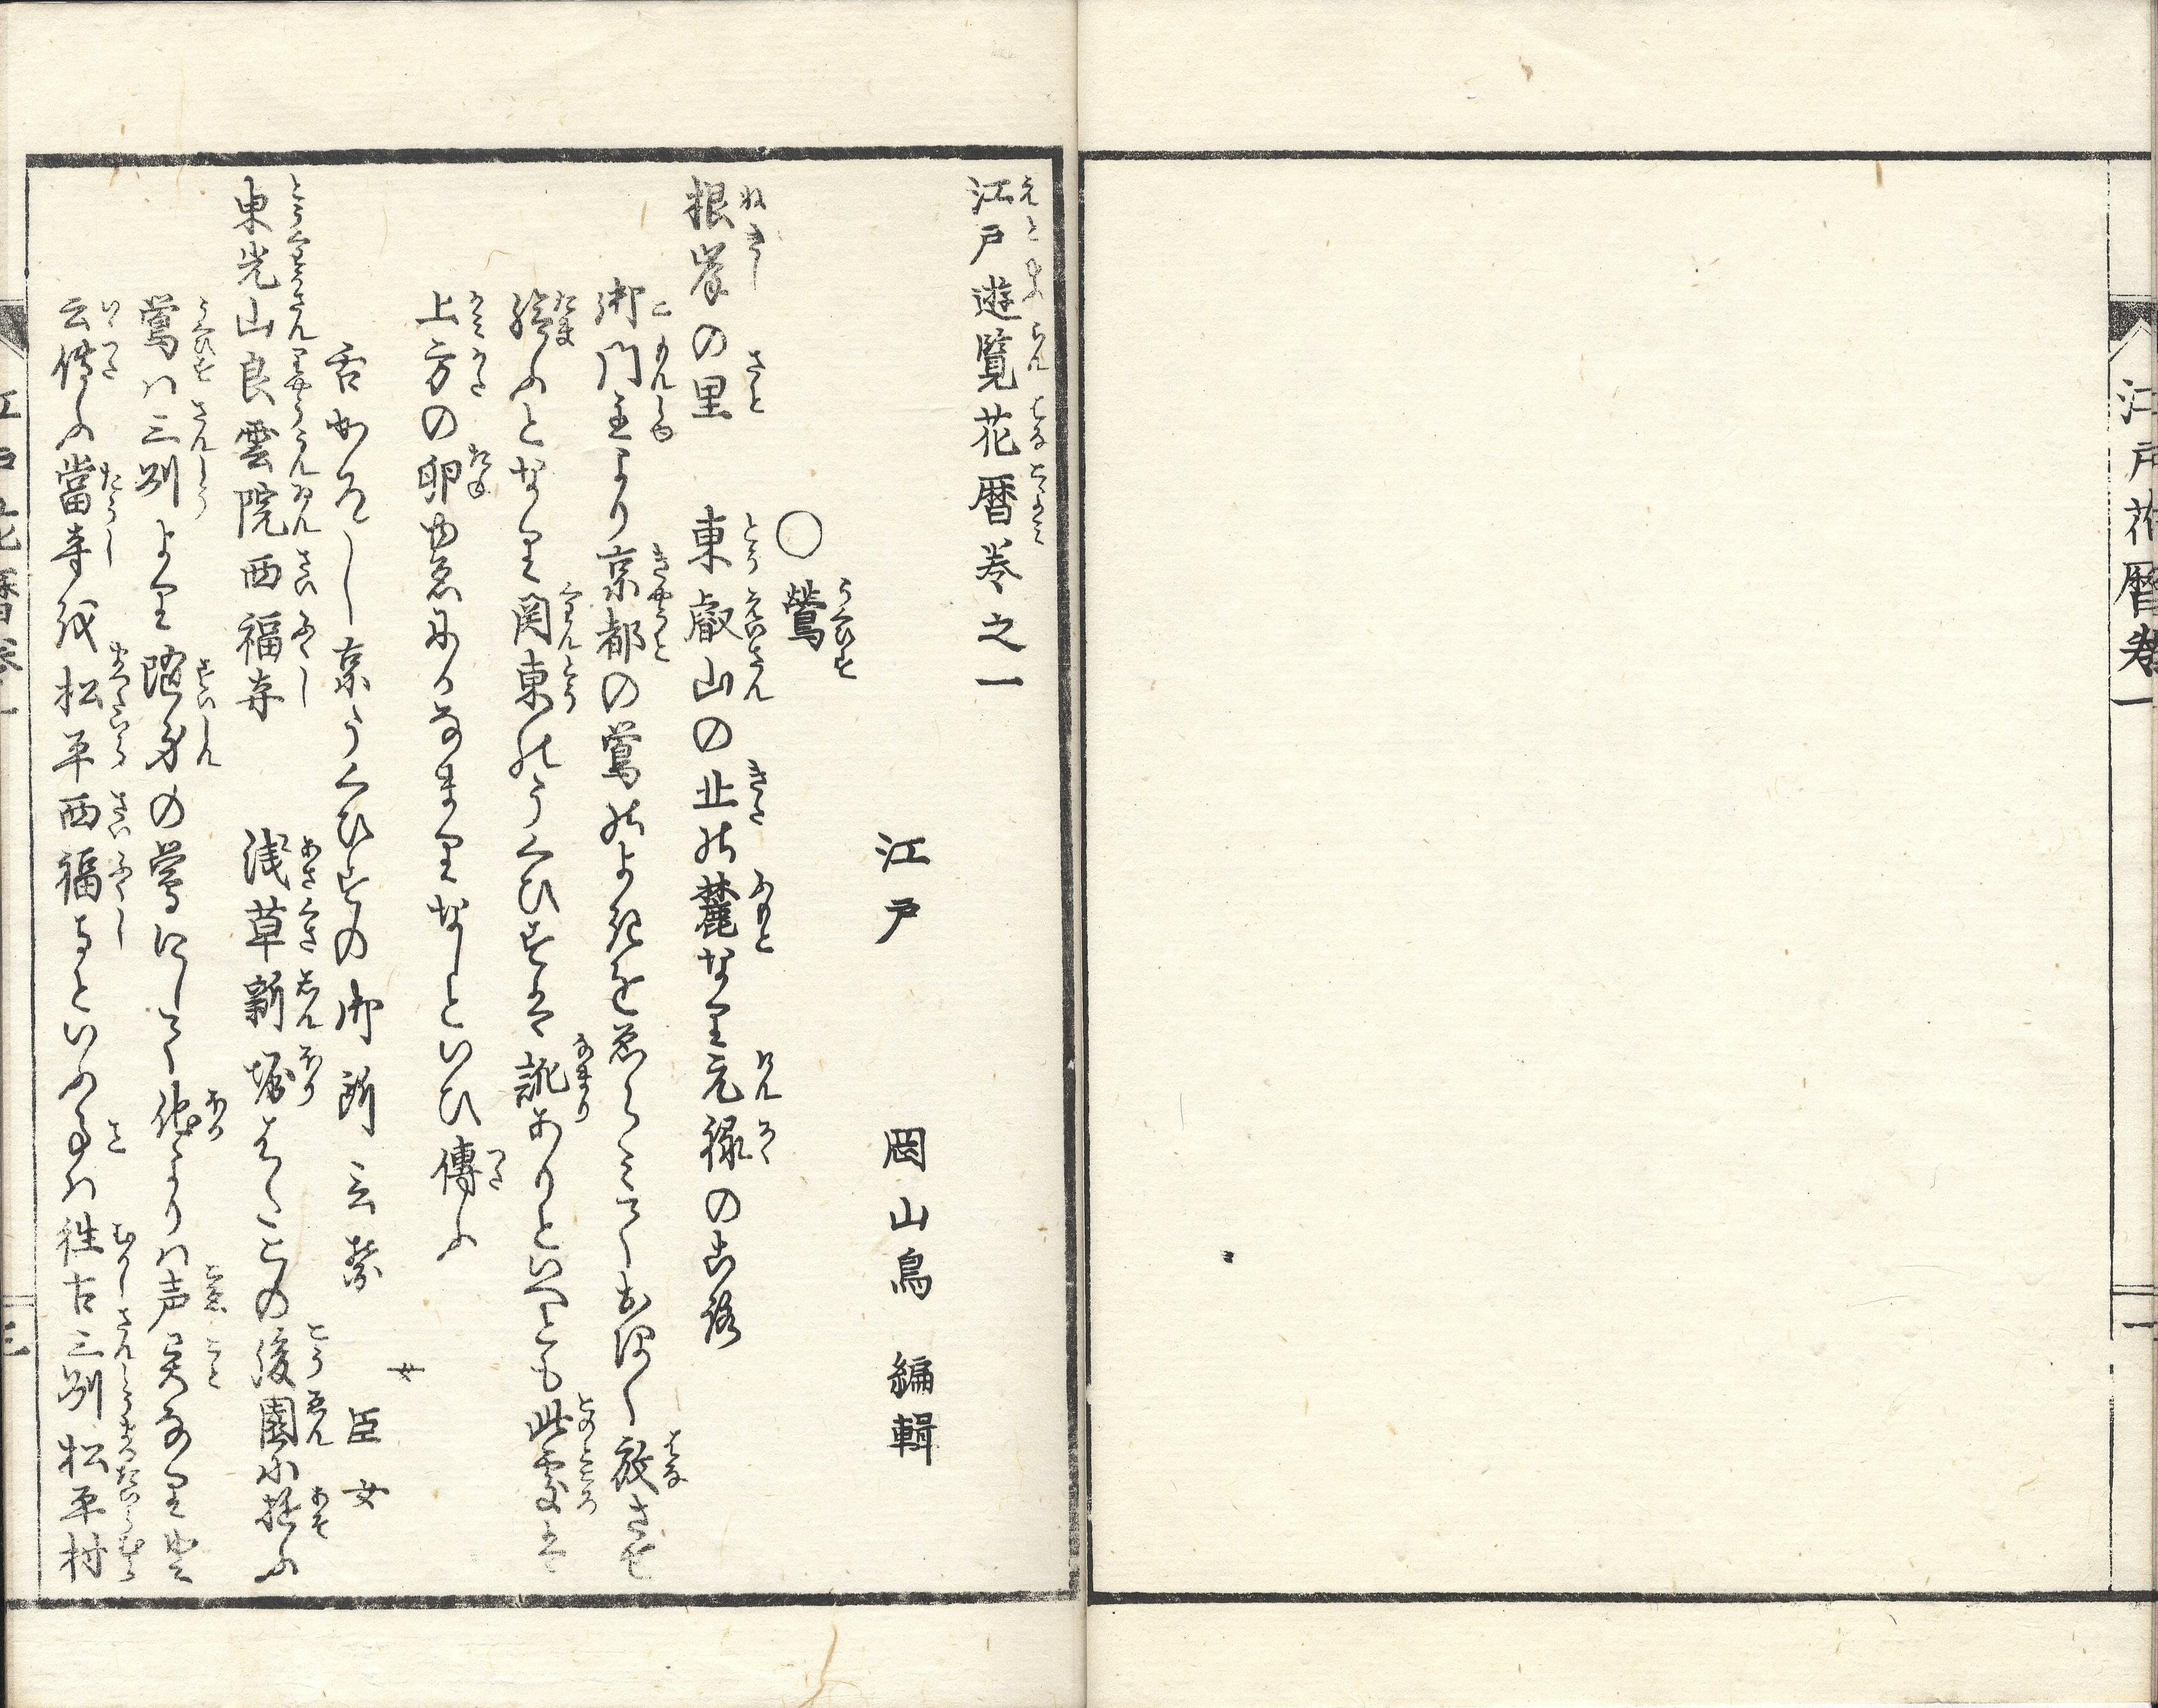 江戸花暦巻一
一
江戸遊覧花暦巻之一
江戸 岡山鳥 編輯
○鶯
根岸の里 東叡山の北の麓なり元禄の比
御門主より京都の鶯のよきをゑらみておほく放させ
給ふとなり関東のうくひすは訛ありといへとも此処は
上方の卵ゆゑにかなまりなしといひ傳ふ
舌かろし京うくひすの御所言葉 女 臣女
東光山良雲院西福寺 浅草新堀はたこの後園に遊ふ
鶯ハ三州より随身の鶯にして他よりハ声異なり也
云傳ふ當寺を松平西福寺といふ事ハ往古三州松平村
江戸花暦巻一
三